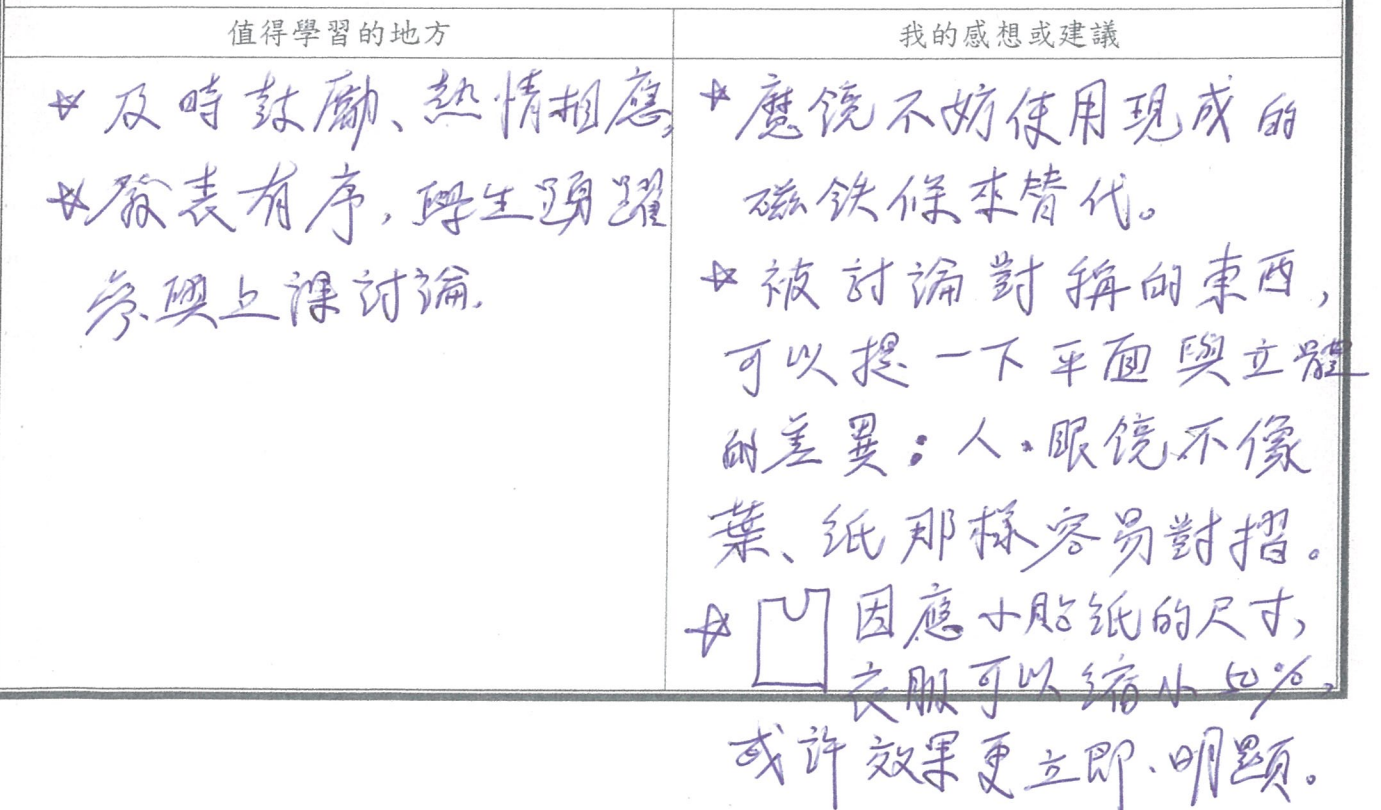 值得學習的地方
☆及時鼓勵、熱情相應,
☆發表有序,學生踴躍
參與上課討論.
我的感想或建議
☆魔鏡不妨使用現成的
磁鉄條來替代。
☆被討論對稱的東西,
可以提一下平面與立體
的差異:人、眼鏡不像
葉、紙那樣容易對摺。
☆因應小貼紙的尺寸,
衣服可以縮小50%,
或許效果更立即、明顯。